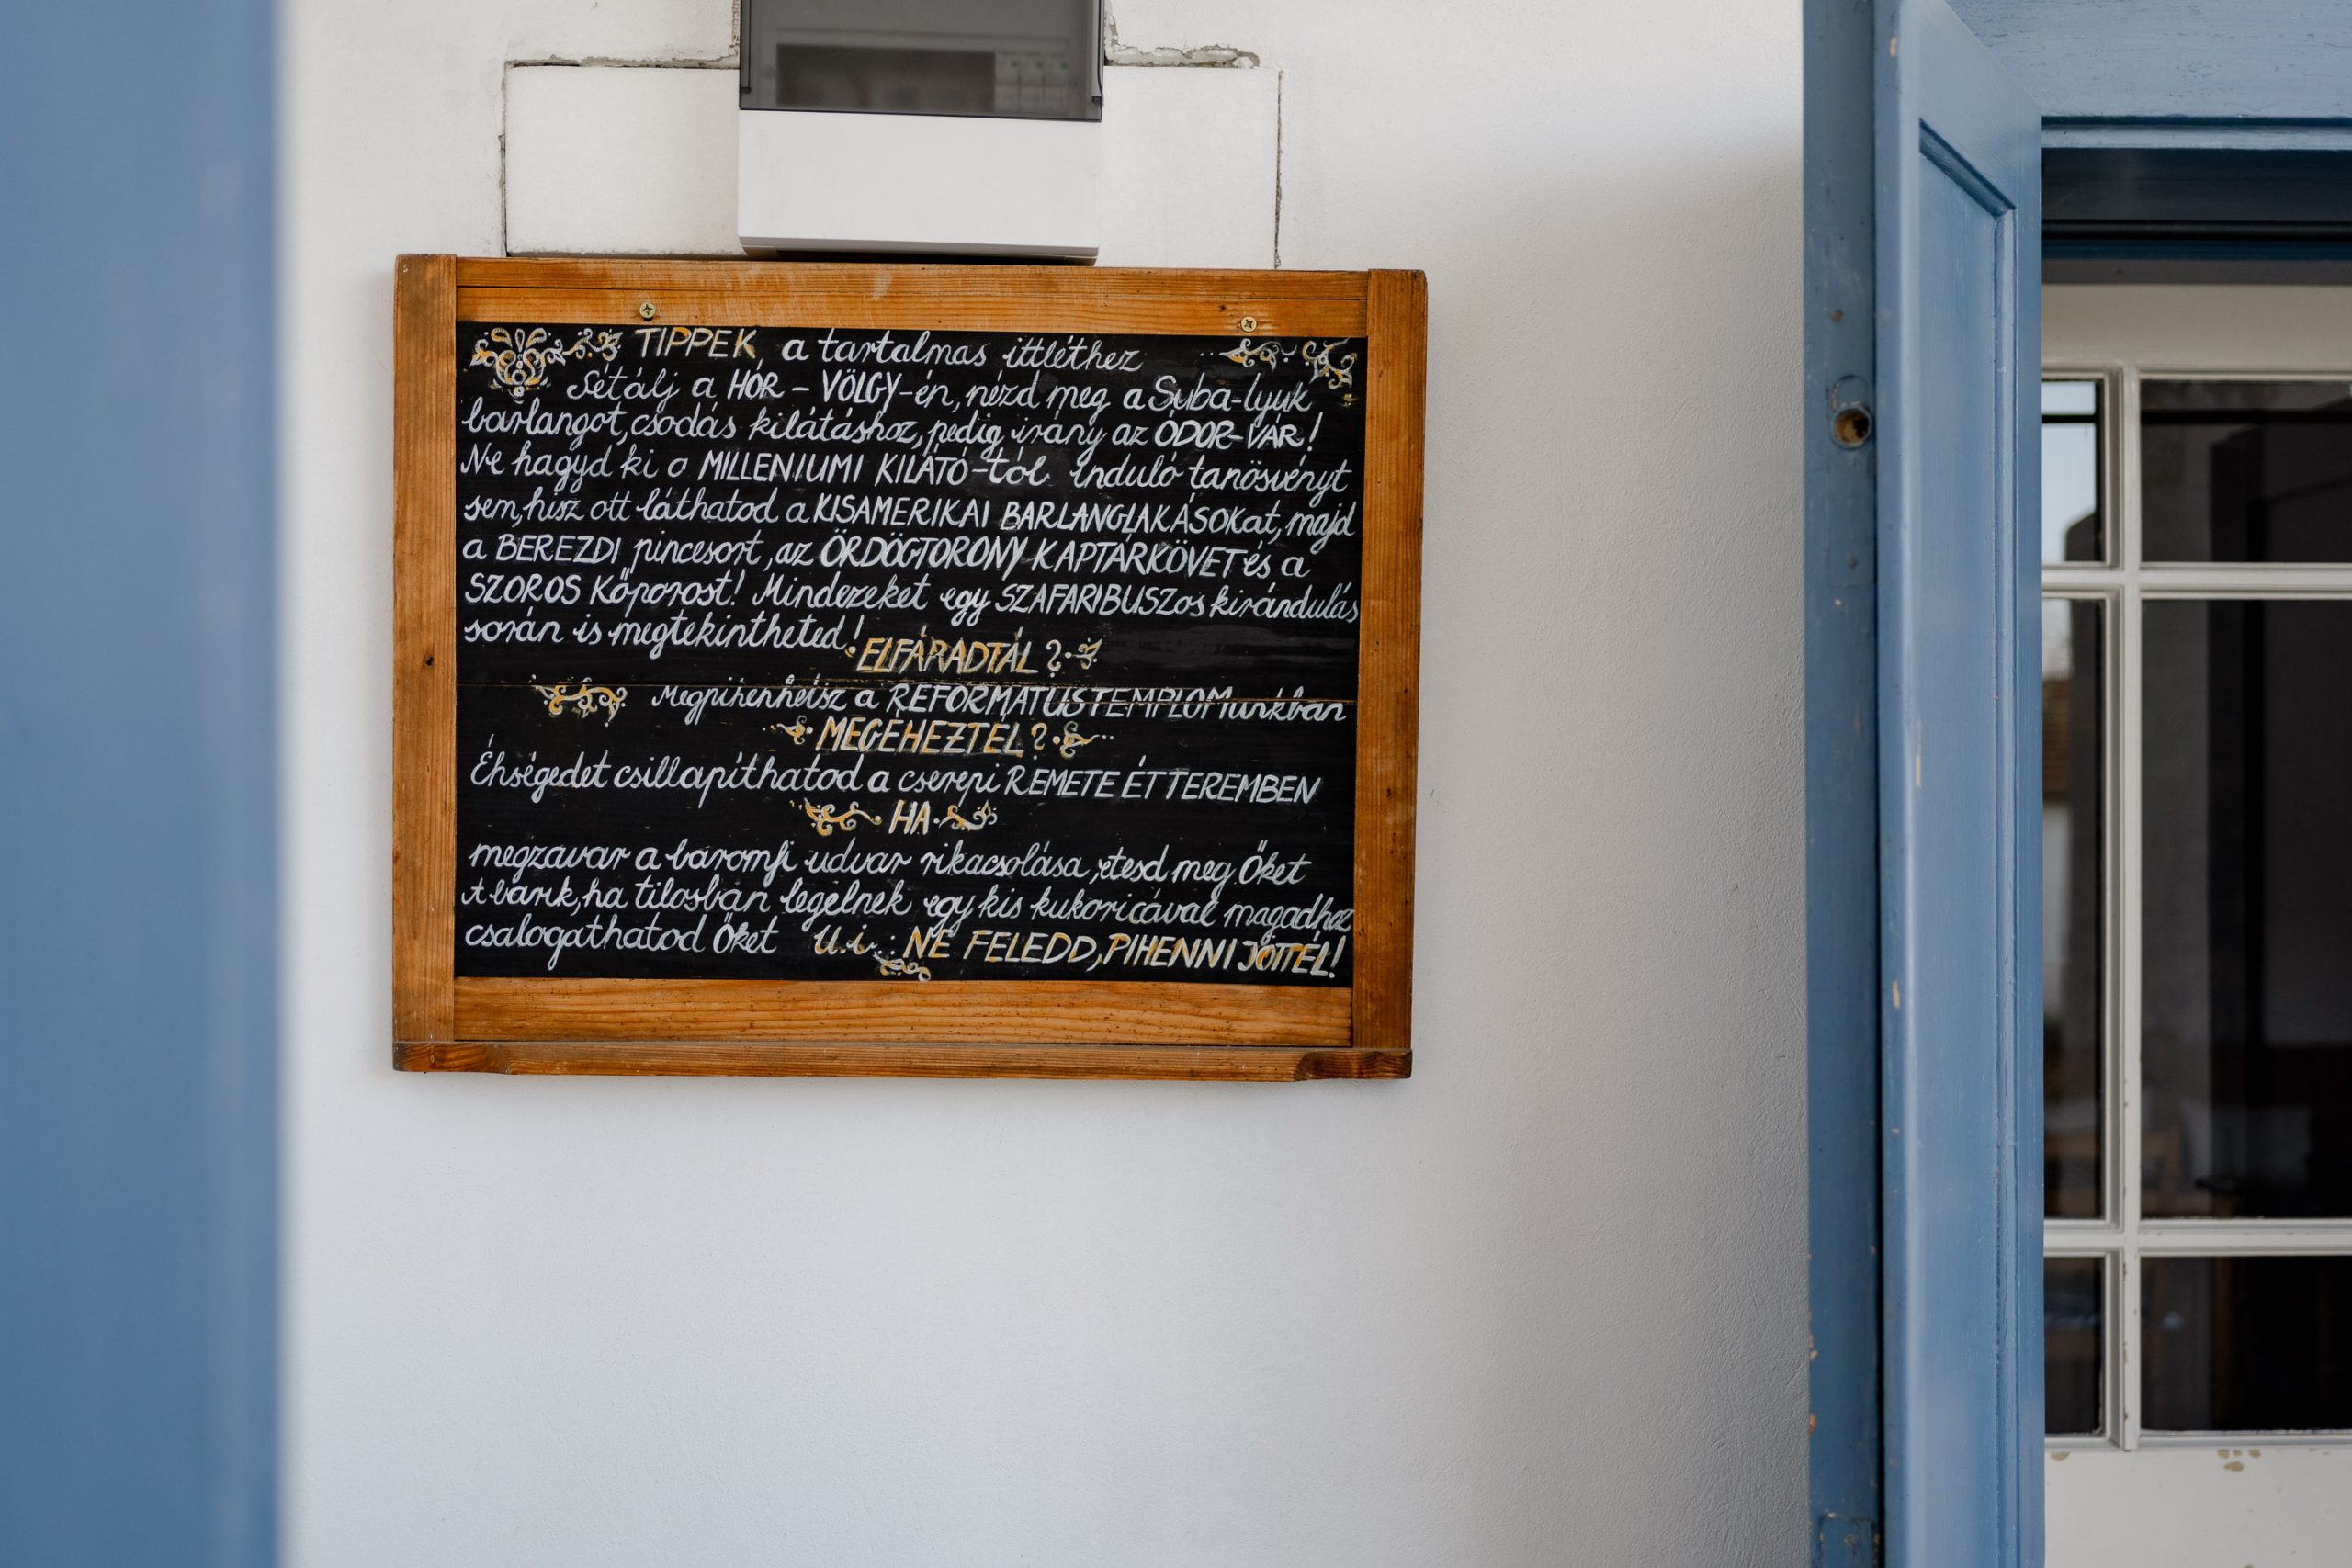 TIPPEK, a tartalmas ittléthez
Sétálj a HÓR - VÖLGY-én, nézd meg a Suba-lyuk
barlangot, csodás kilátáshoz, pedig irány az ÓDOR-VÁR!
Ne hagyd ki a MILLENIUMI KILÁTÓ-tól induló tanösvényt
sem, hisz ott láthatod a KISAMERIKAI BARLANGLAKÁSOKat, majd
a BEREZDI pincesort, az ÖRDÖGTORONY KAPTÁRKÖVET és a
SZOROS Kőporost! Mindezeket egy SZAFARIBUSZos kirándulás
során is megtekintheted!
ELFÁRADTÁL?
Megpihenhetsz a REFORMÁTUSTEMPLOMunkban
MEGÉHEZTÉL?
Éhségedet csillapíthatod a cserepi REMETE ÉTTEREMBEN
HA
megzavar a baromfi udvar rikácsolása, etesd meg Őket
A barik, ha tilosban legelnek egy kis kukoricával magadhoz
csalogathatod Őket U.i.: NE FELEDD, PIHENNI JÖTTÉL!